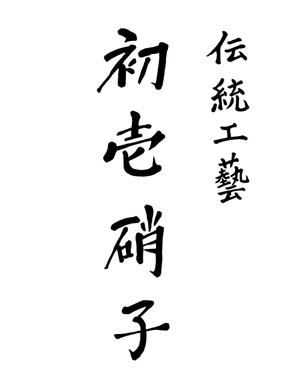 伝統工藝
初壱硝子